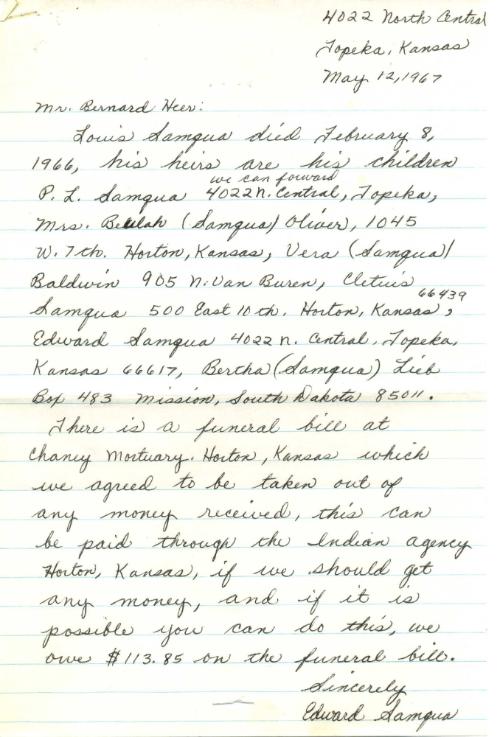 4022 North Central
Topeka, Kansas
May 12, 1967
Mr. Bernard Heer:
Louis Samqua died February 8,
1966, his heirs are his children
we can forward
P. L. Samqua 4022 N. Central, Topeka,
Mrs. Beulah (Samqua) Oliver, 1045
W. 7th. Horton, Kansas, Vera (Samqua)
Baldwin 905 N. Van Buren, Cletuis
66439
Samqua 500 East 10th. Horton, Kansas,
Edward Samqua 4022 N. Central, Topeka,
Kansas 66617, Bertha (Samqua) Lieb
Box 483 Mission, South Dakota 85011.
There is a funeral bill at
Chaney Mortuary. Horton, Kansas which
we agreed to be taken out of
any money received, this can
be paid through the Indian agency
Horton, Kansas, if we should get
any money, and if it is
possible you can do this, we
owe $113.85 on the funeral bill.
Sincerely
Edward Samqua